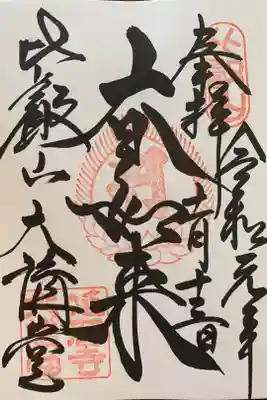 奉拝
令和元年
十一月十三日
大日如来
比叡山 大講堂